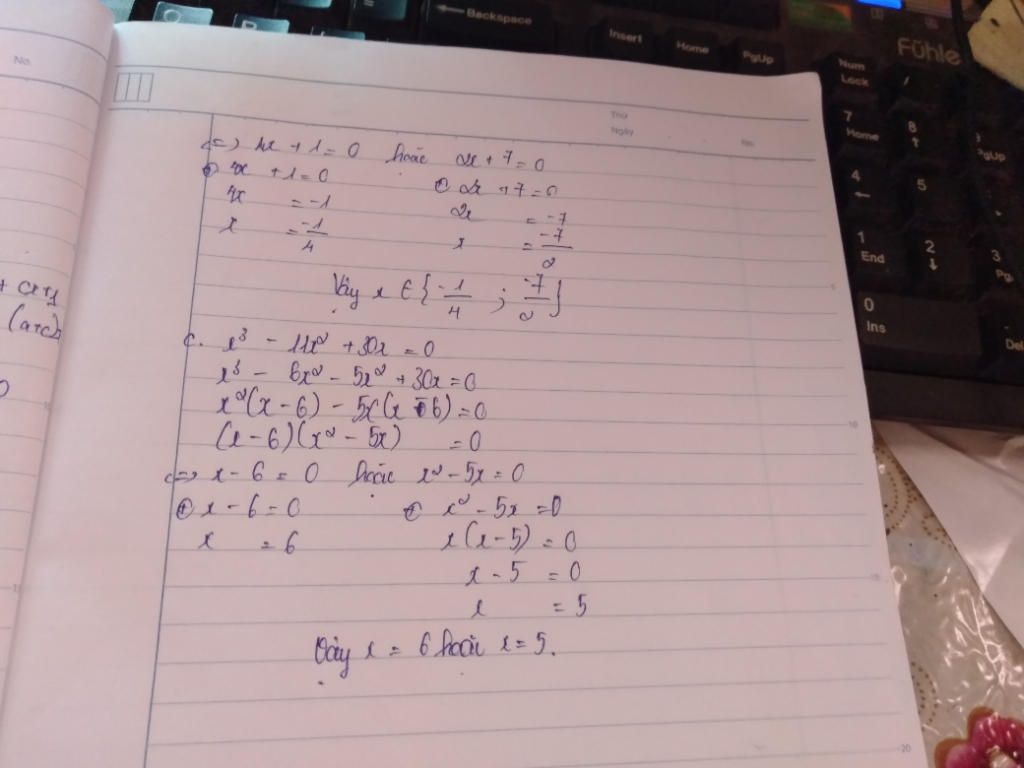 Backspace
Insert Home PgUp
Fühle
Num Lock /
7 Home 8 ↑ PgUp
4 ← 5
1 End 2 ↓ 3 Pg
0 Ins Del
No
Thứ
Ngày No
<=> 4x + 1 = 0 hoặc 2x + 7 = 0
⊕ 4x + 1 = 0 ⊕ 2x + 7 = 0
4x = -1 2x = -7
x = -1/4 x = -7/2
Vậy x ∈ {-1/4 ; -7/2}
+ cx+1
(a+c)
c. x³ - 11x² + 30x = 0
x³ - 6x² - 5x² + 30x = 0
x²(x - 6) - 5x(x - 6) = 0
(x - 6)(x² - 5x) = 0
<=> x - 6 = 0 hoặc x² - 5x = 0
⊕ x - 6 = 0 ⊕ x² - 5x = 0
x = 6 x(x - 5) = 0
x - 5 = 0
x = 5
Vậy x = 6 hoặc x = 5.
5
10
15
20